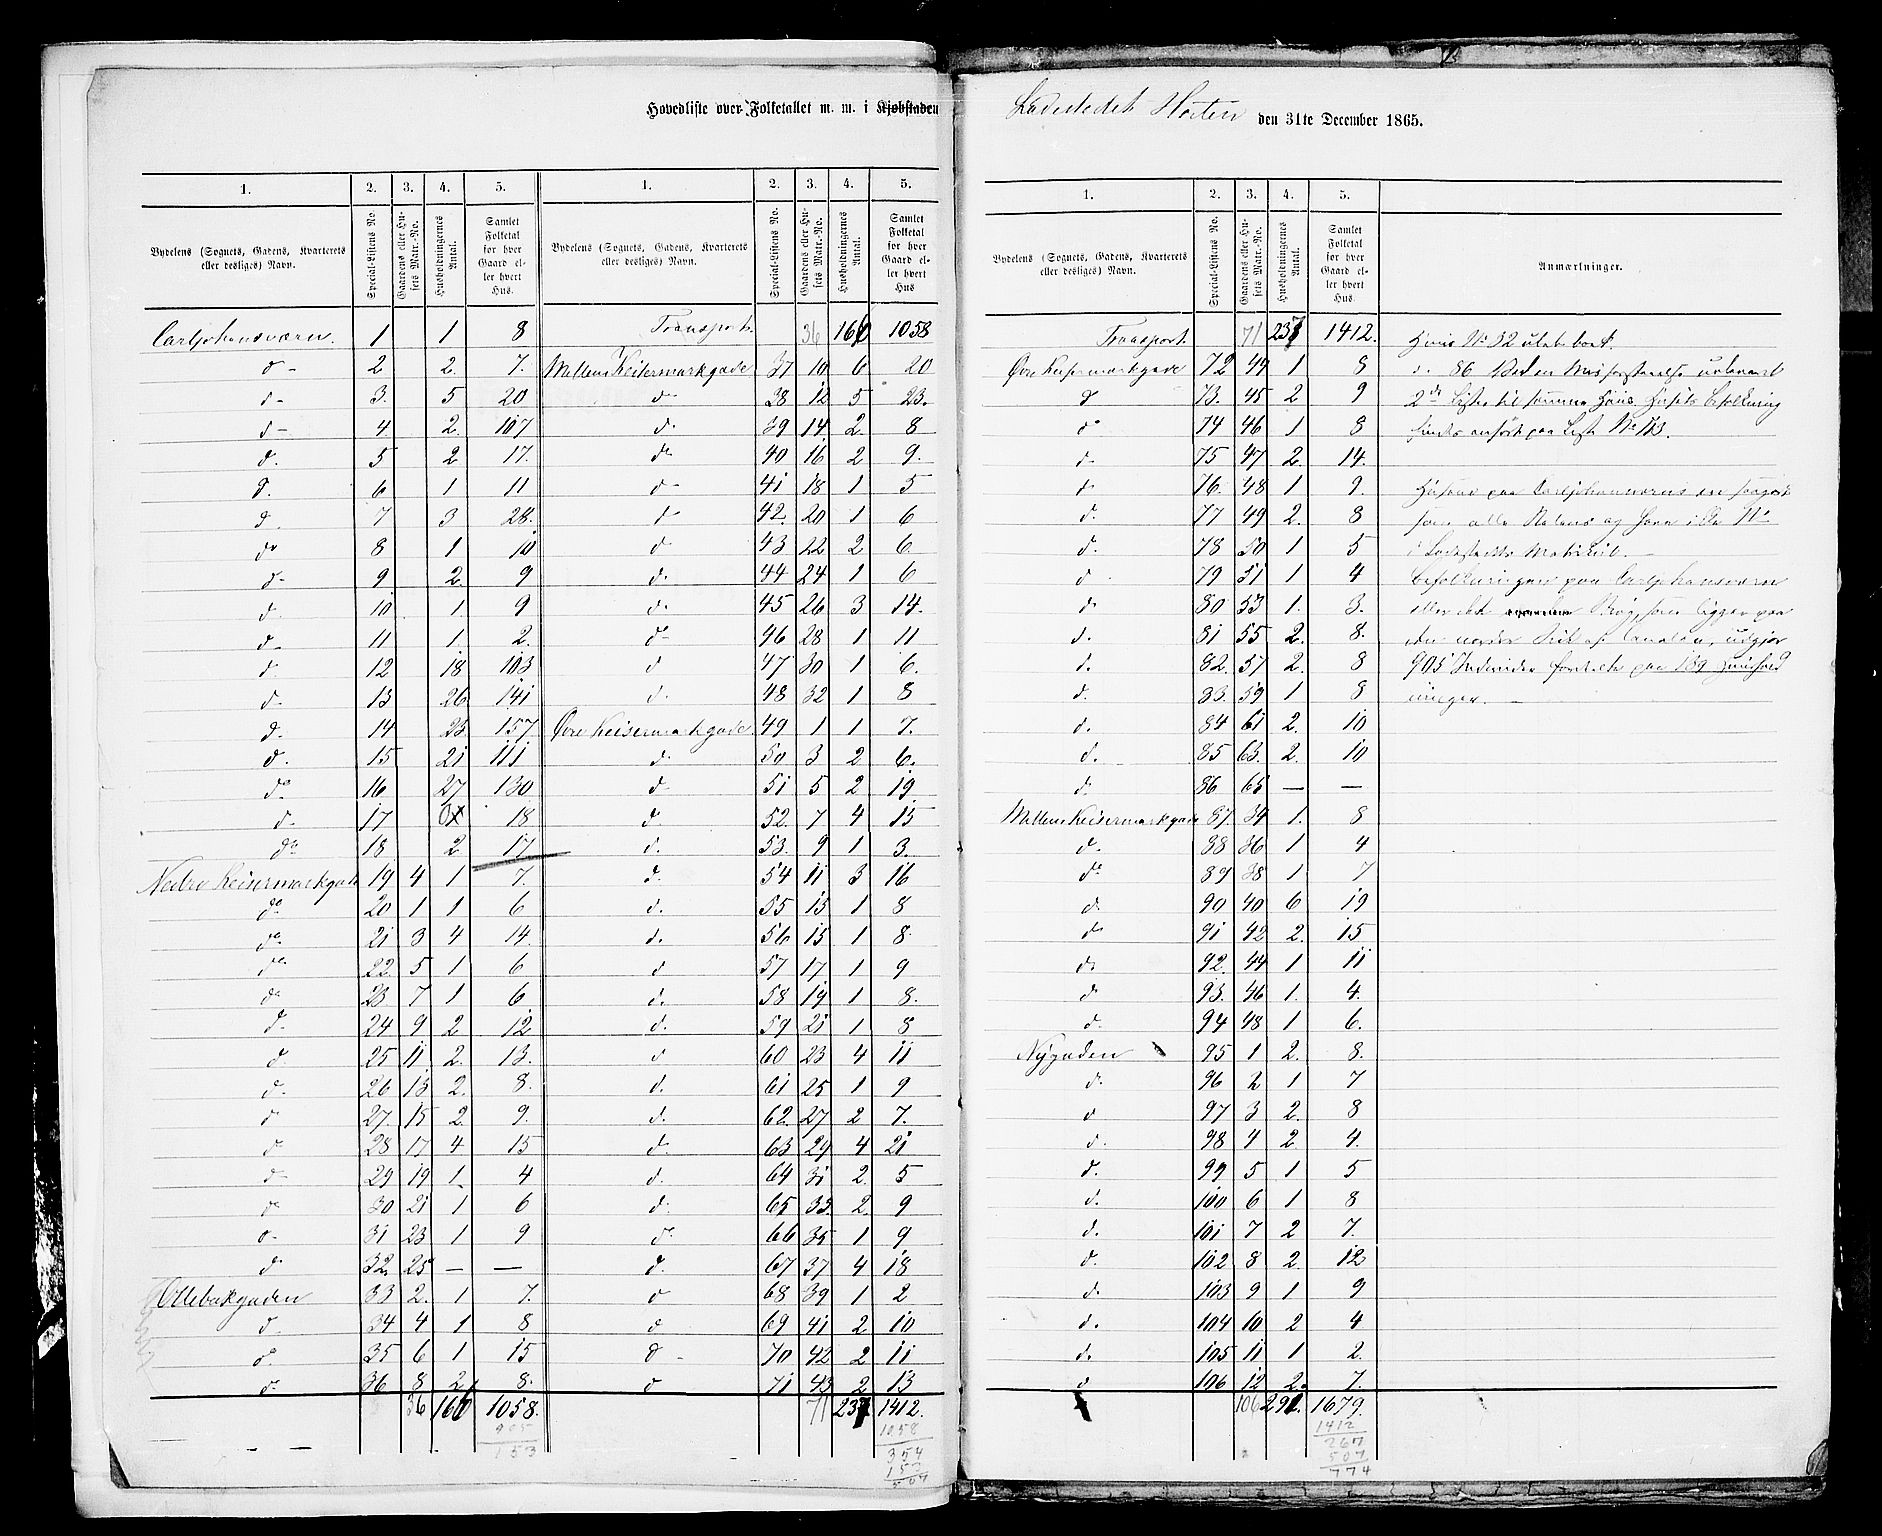 Hovedliste over Folketallet m. m. i Kjøbstaden Ladestedet Horten den 31te December 1865.
1. 2. 3. 4. 5. 1. 2. 3. 4. 5.
Bydelens (Sognets, Gadens, Kvarterets eller desliges) Navn. Special-Listens No. Gaardens eller Husets Matr.-No. Husholdningernes Antal. Samlet Folketal for hver Gaard eller hvert Hus. Bydelens (Sognets, Gadens, Kvarterets eller desliges) Navn. Special-Listens No. Gaardens eller Husets Matr.-No. Husholdningernes Antal. Samlet Folketal for hver Gaard eller hvert Hus
Carljohansværn. 1 1 8 Transport. 36 160 1058
d- 2 2. 7. Mellem Keisermarkgade 37 10 6 20
d- 3. 5 20 d- 38 12 5 23.
d- 4 2. 107 d. 39 14. 2. 8
d. 5 2 17. do 40 16 2 9.
d. 6 1 11 d- 41 18 1 5
d. 7 3 28. d- 42. 20 1 6
do 8 1 10 d 43 22 2 6
d- 9 2. 9 d. 44 24 1 6
d. 10 1. 9 d. 45 26 3 14.
d- 11 1. 2. do 46 28 1 11
d. 12 18 103 d 47 30 1 6.
d- 13 26 141 d. 48 32 1 8
d. 14 23 157 Øvre Keisermarkgade. 49 1 1 7.
d. 15 21 111 d. 50 3 2 6.
do 16 27 130 d 51 5 2 19
d- 17 18 d. 52. 7 4 15
do 18 2 17 d. 53. 9 1 3.
Nedre Keisermarkgade 19 4 1 7. d. 54 11 3 16
do 20 1 1 6 d. 55 13 1 8
do 21 3 4 14. d. 56 15 1 8.
do 22. 5 1 6 d 57 17 1 9
do 23 7 1 6 d. 58 19 1 8.
d- 24 9 2 12 d. 59 21 1 8
d. 25 11 2. 13. d 60 23 4 11
d. 26 13 2. 8. d. 61 25 1 9
d- 27. 15 2. 9. d. 62. 27 2 7.
d 28 17 4 15 d. 63 29 4 21
d- 29 19 1 4 d. 64 31 2. 5
do 30 21 1 6 d. 65 33. 2. 9
d- 31 23 1 9 do 66 35 1 9
d- 32. 25 — — d. 67 37 4 18
Ollebakgaden 33 2. 1 7. d 68 39 1 2
d 34 4 1 8 d 69 41 2 10
do 35 6 1 15 d- 70 42 2 11
d- 36 8 2 8. d 71 43 2 13
36 160 1058. 71 237 1412.
905 1058
153 354
153
507
1. 2. 3. 4. 5.
Bydelens (Sognets, Gadens, Kvarterets eller desliges) Navn. Special-Listens No. Gaardens eller Husets Matr.-No. Husholdningernes Antal. Samlet Folketal for hver Gaard eller hvert Hus. Anmærkninger.
Transport. 71 237 1412. Huus No 32 ubeboet.
Øvre Keisermarkgade 72 44 1 8 do 86 Ved en Misforstaaelse
d 73. 45 2 9 2de Lister til samme Huus, Husets Befolkning
do 74 46 1 8 findes anført paa Liste No 113.
d- 75 47 2. 14.
d- 76. 48 1 9. Husene paa Carljohansværns
d. 77 49 2. 8
d. 78 50 1 5 i Ladestedets Matrikul. —
d 79 51 1 4 Befolkningen paa Carljohansværn
d. 80 53 1. 3. eller det Strøg, som ligger paa
d. 81 55 2. 8. den nordre Side af Canalen, udgjør
d. 82. 57 2. 8 905 Individer fordeelte paa 139 Huushold
d. 83. 59 1 8 ninger. —
d. 84 61 2. 10
d. 85 63. 2. 10
d. 86 65 — —
Mellem Keisermarkgade 87. 34 1. 8
d. 88 36 1 4
do 89 38 1 7
d. 90 40 6 19
d- 91 42 2. 15
d. 92. 44 1 11
d- 93. 46 1. 4.
d. 94 48 1 6.
Nygaden 95 1 2. 8.
d. 96 2 1 7
d 97 3 2. 8
d. 98 4 2 4.
d. 99 5 1 5
d. 100 6 1 8
d. 101 7 2 7.
d. 102 8 2. 12
d. 103 9 1 9
d. 104 10 2 4
d. 105 11 1 2.
d 106 12 2. 7.
106 291. 1679.
1412
267
507
774